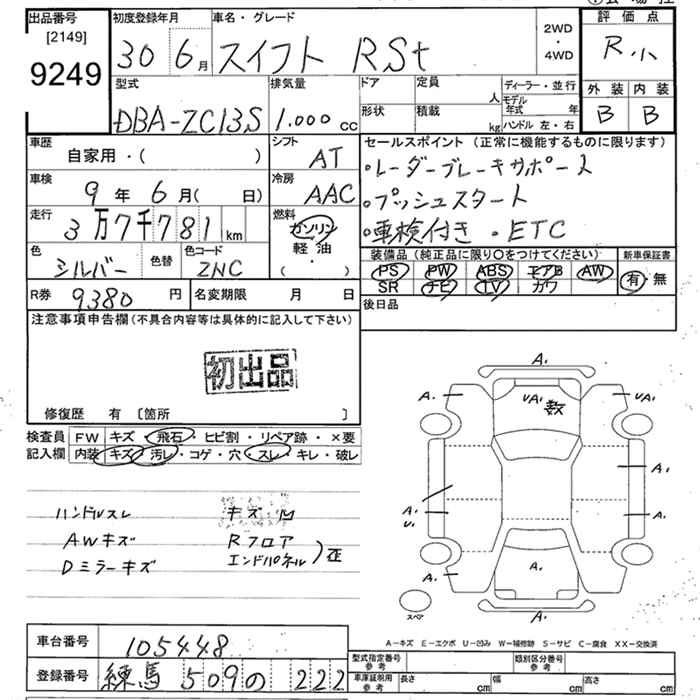 出品番号
[2149]
9249
初度登録年月
30 6月
車名・グレード
スイフト RSt
2WD
・
4WD
評価点
R小
外装 内装
B B
型式
DBA-ZC13S
排気量
1.000 cc
ドア
形状
定員
人
積載
kg
ディーラー・並行
モデル年式 年
ハンドル 左・右
車歴
自家用・( )
シフト
AT
車検
9年6月( 日)
冷房
AAC
走行
3万7千781km
燃料
ガソリン
軽・油
( ・ )
色
シルバー
色替
色コード
ZNC
R券 9380円
名変期限 月 日
セールスポイント(正常に機能するものに限ります)
・レーダーブレーキサポート
・プッシュスタート
・車検付き ・ETC
装備品(純正品に限り○をつけてください)
PS PW ABS エアB AW
SR ナビ TV カワ
新車保証書
有・無
後日品
注意事項申告欄(不具合内容等は具体的に記入して下さい)
初出品
修復歴 有 〔箇所 〕
検査員記入欄
FW キズ・飛石・ヒビ割・リペア跡・×要
内装 キズ・汚レ・コゲ・穴・スレ・キレ・破レ
ハンドルスレ
AWキズ
Dミラーキズ
キズ凹
Rフロア
エンドパネル)歪
A.
A.
UA.
数
UA.
A.
A.
U.
A.
A.
A.
A.
スペア
A-キズ E-エクボ U-凹み W-補修跡 S-サビ C-腐食 XX-交換済
車台番号 105448
登録番号 練馬 509 の 222
型式指定番号
参考
類別区分番号
参考
車庫証明用
参考
長さ cm
幅 cm
高さ cm